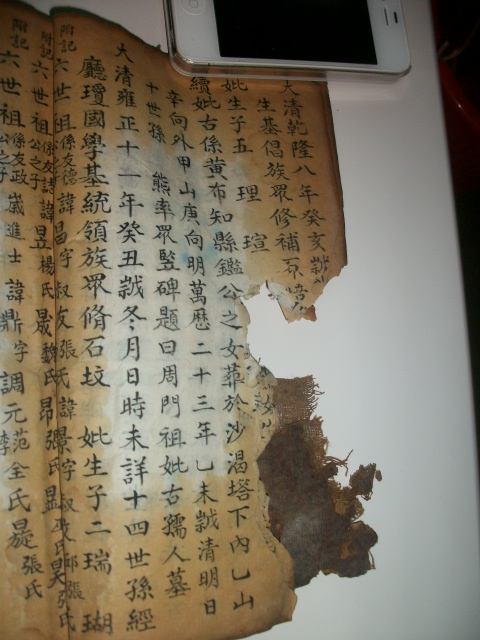 大清乾隆八年癸亥歲
生基倡族眾修補原
妣生子五 理 瑄
續妣古係黃布知縣鑑公之女葬於沙渴塔下內乙山
辛向外甲山庚向明萬歷二十三年乙未歲清明日
十世孫 熊率眾竪碑題曰周門祖妣古孺人墓
大清雍正十一年癸丑歲冬月日時未詳十四世孫經
廳瓊國學基統領族眾脩石坟 妣生子二瑞 瑚
附記六世祖係友德公之子諱昌字叔友張氏諱景字叔
附記六世祖係友誌公之子諱昱楊氏晟魏氏昂張氏
附記六世祖係友政公之子 歲進士 諱鼎字調元范全氏 張氏